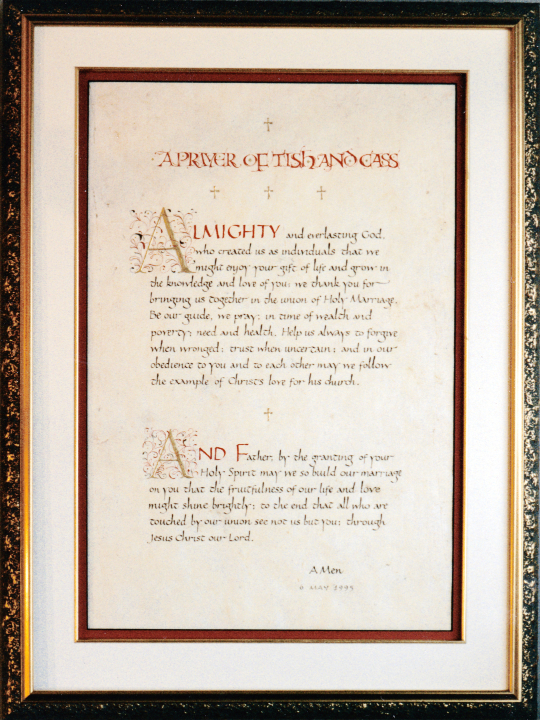 A PRAYER OF TISH AND CASS
ALMIGHTY and everlasting God,
who created us as individuals that we
might enjoy your gift of life and grow in
the knowledge and love of you: we thank you for
bringing us together in the union of Holy Marriage.
Be our guide, we pray: in time of wealth and
poverty; need and health. Help us always to forgive
when wronged; trust when uncertain; and in our
obedience to you and to each other may we follow
the example of Christ's love for his church.
AND Father, by the granting of your
Holy Spirit may we so build our marriage
on you that the fruitfulness of our life and love
might shine brightly; to the end that all who are
touched by our union see not us but you: through
Jesus Christ our Lord.
A Men
MAY 1995